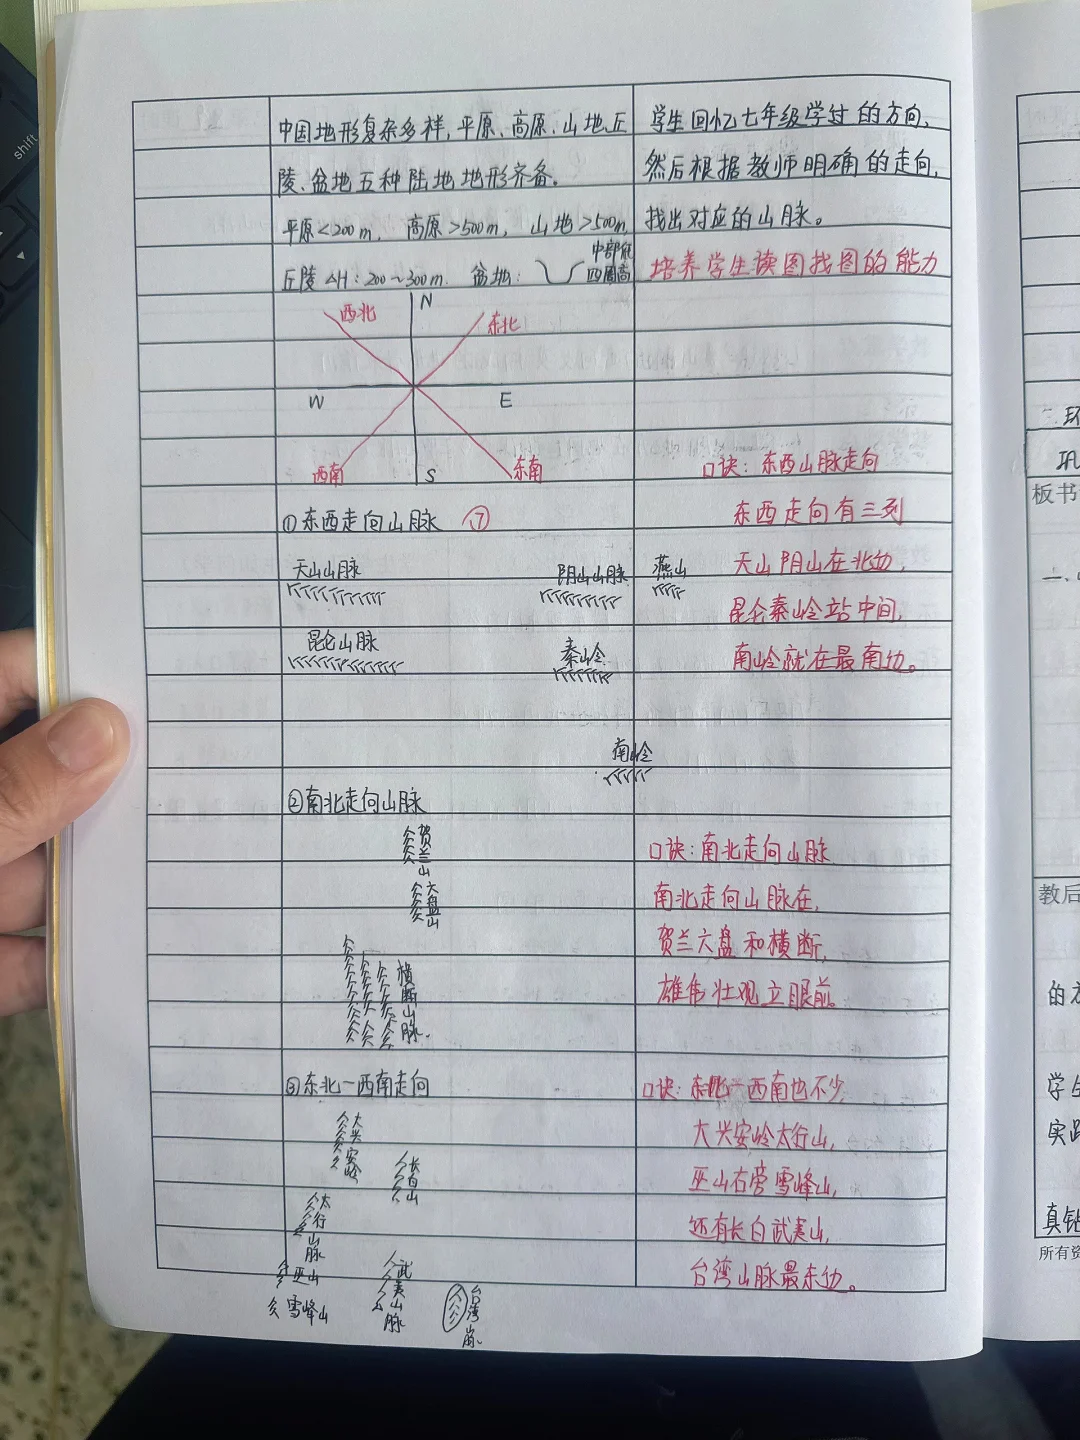 shift
中国地形复杂多样,平原、高原、山地、丘
陵、盆地五种陆地地形齐备。
平原<200m, 高原>500m, 山地>500m,
丘陵 △H:200~300m. 盆地:
中部低
四周高
N
西北
东北
W
E
西南
S
东南
①东西走向山脉 ⑦
天山山脉
阴山山脉
燕山
昆仑山脉
秦岭
南岭
②南北走向山脉
贺兰山
六盘山
横断山脉
③东北一西南走向
大兴安岭
长白山
太行山脉
巫山
雪峰山
武夷山脉
台湾
学生回忆七年级学过的方向,
然后根据教师明确的走向,
找出对应的山脉。
培养学生读图找图的能力
口诀:东西山脉走向
东西走向有三列
天山阴山在北边,
昆仑秦岭站中间,
南岭就在最南边。
口诀:南北走向山脉
南北走向山脉在,
贺兰六盘和横断,
雄伟壮观立眼前
口诀:东北一西南也不少,
大兴安岭太行山,
巫山右旁雪峰山,
还有长白武夷山,
台湾山脉最东边。
板书
教后
的方
学生
实践
真钻
所有资